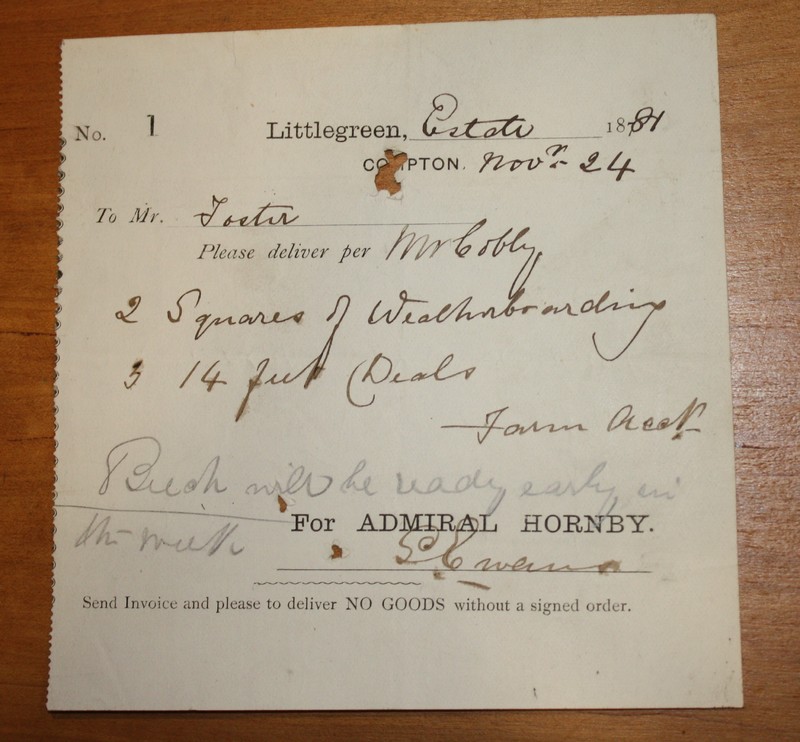 No. 1 Littlegreen, Estate 1881
COMPTON. Novr. 24
To Mr. Foster
Please deliver per Mr Cobby
2 Squares of Weatherboarding
3 14 feet Deals
— Farm Acct
Beech will be ready early in
the week
For ADMIRAL HORNBY.
G Evans
Send Invoice and please to deliver NO GOODS without a signed order.